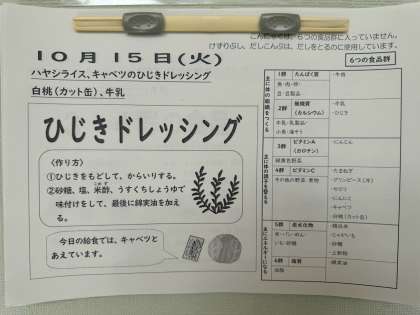 こんにゃくは、6つの食品群に入っていません。
けずりぶし、だしこんぶは、だしをとるのに使用しています。
10月15日(火)
ハヤシライス、キャベツのひじきドレッシング
白桃(カット缶)、牛乳
ひじきドレッシング
〈作り方〉
①ひじきをもどして、からいりする。
②砂糖、塩、米酢、うすくちしょうゆで
味付けをして、最後に綿実油を加え
る。
今日の給食では、キャベツと
あえています。
6つの食品群
1群 たんぱく質
・牛肉
魚・肉・卵・
豆・豆製品
2群 無機質
(カルシウム)
・牛乳
・ひじき
牛乳・乳製品・
小魚・海そう
3群 ビタミンA
(カロチン)
・にんじん
緑黄色野菜
4群 ビタミンC
その他の野菜・果物
・たまねぎ
・グリンピース(冷)
・にんにく
・キャベツ
・白桃(カット缶)
5群 炭水化物
・米
・じゃがいも
・砂糖
・上新粉
6群 脂質
・綿実油
油脂